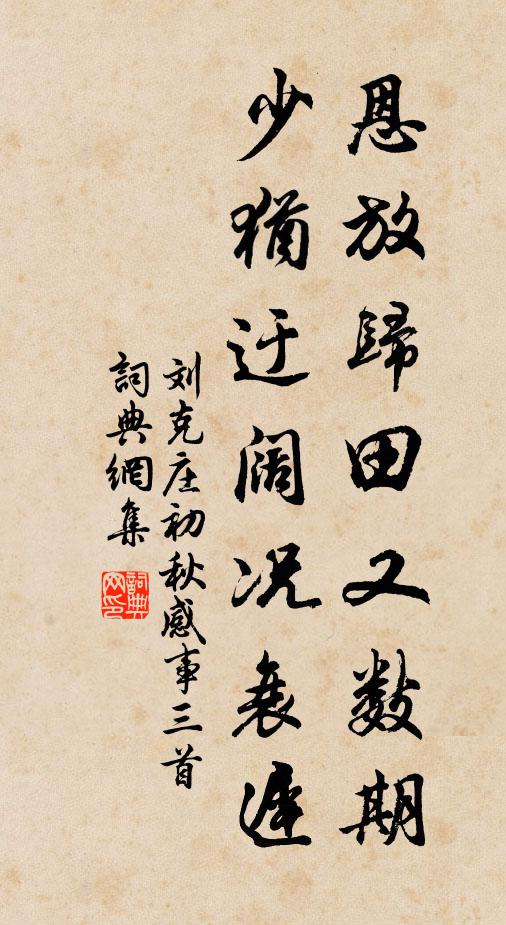 恩放歸田又数期
少猶迂阔况衰遲
刘克庄初秋感事三首
詞典網集
詞典网印